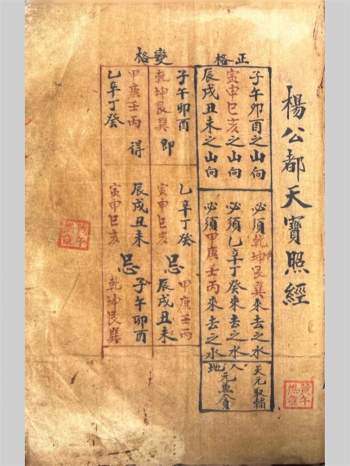 楊公都天寶照經
正格
子午卯酉之山向 必須乾坤艮巽來去之水
寅申巳亥之山向 必須乙辛丁癸來去之水
辰戌丑未之山向 必須甲庚壬丙來去之水
天元取輔
人
地
變格
子午卯酉 乙辛丁癸 甲庚壬丙
乾坤艮巽 即 寅申巳亥 忌 辰戌丑未
甲庚壬丙 得 辰戌丑未 忌 子午卯酉
乙辛丁癸 寅申巳亥 乾坤艮巽